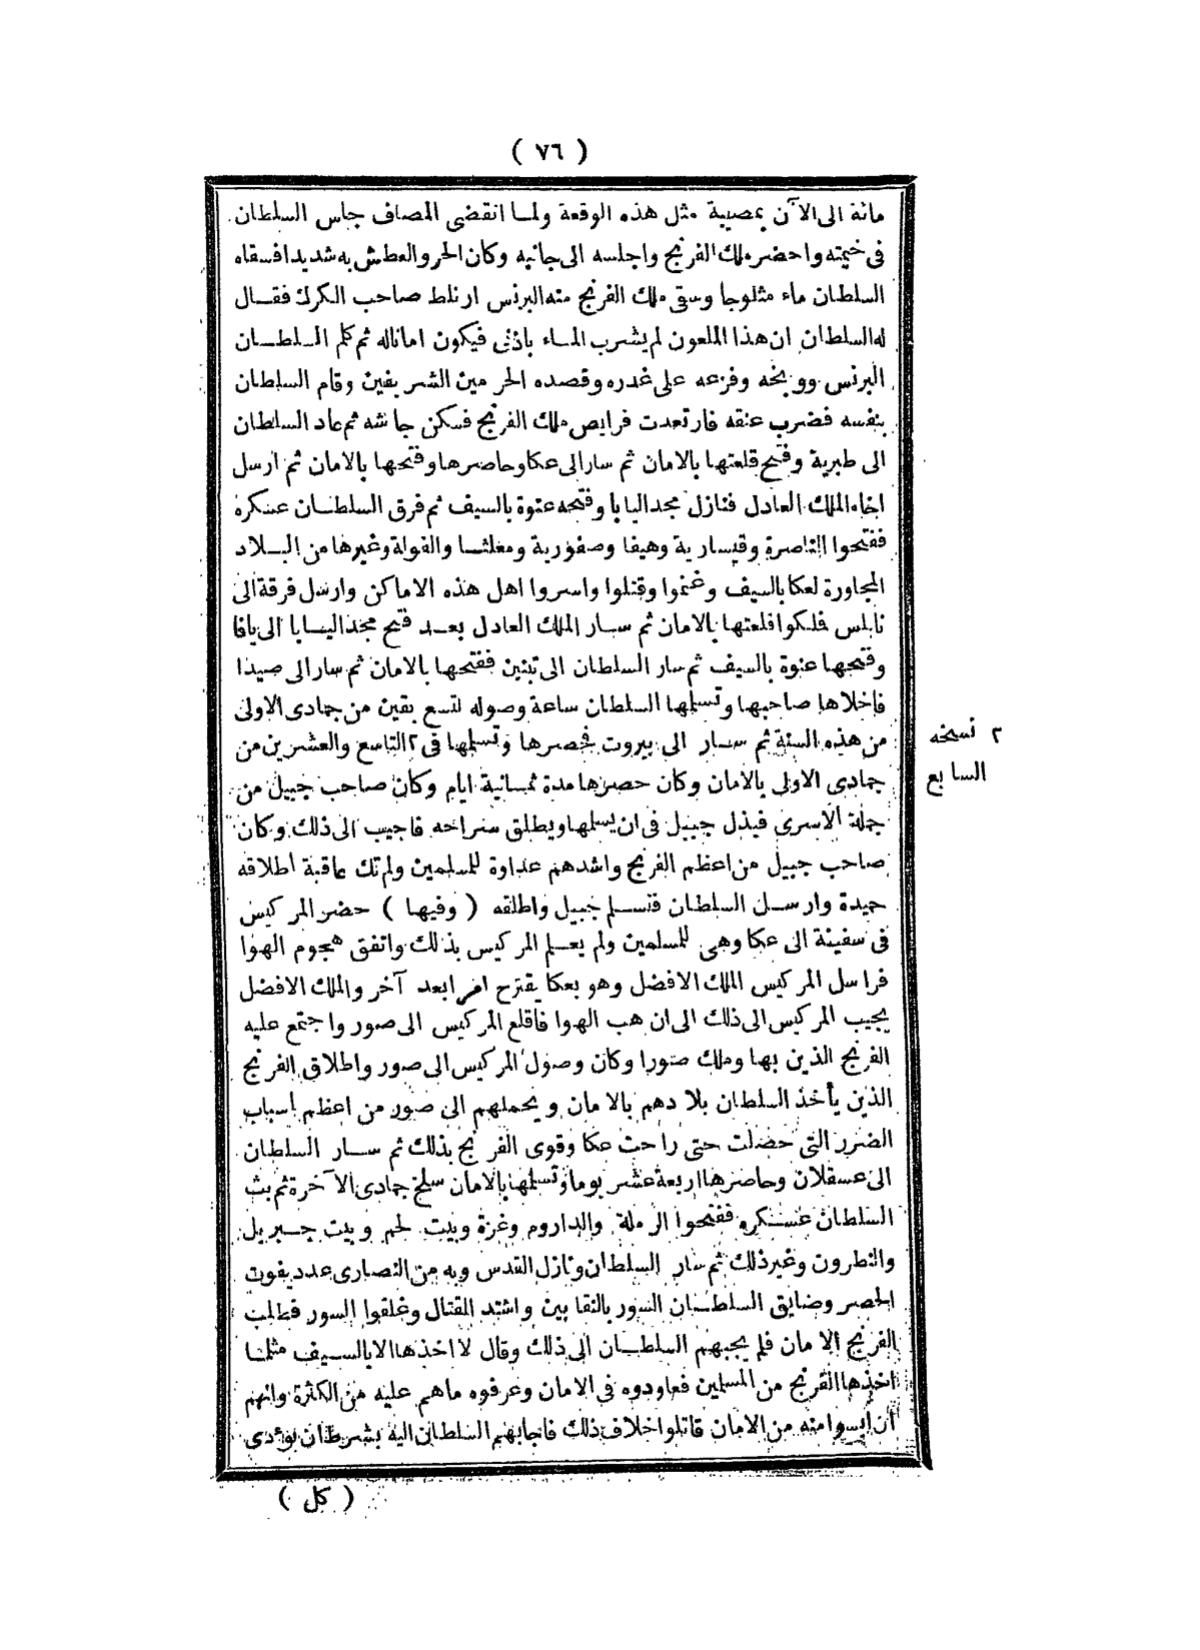 ( ٧٦ )
مائة الى الآن بمصيبة مثل هذه الوقعة ولما انقضى المصاف جلس السلطان
فى خيمته واحضر ملك الفرنج واجلسه الى جانبه وكان الحر والعطش به شديدا فسقاه
السلطان ماء مثلوجا وسقى ملك الفرنج منه البرنس ارناط صاحب الكرك فقال
له السلطان ان هذا الملعون لم يشرب الماء باذنى فيكون امانا له ثم كلم السلطان
البرنس ووبخه وقرعه على غدره وقصده الحرمين الشريفين وقام السلطان
بنفسه فضرب عنقه فارتعدت فرايص ملك الفرنج فسكن جاشه ثم عاد السلطان
الى طبرية وفتح قلعتها بالامان ثم سار الى عكا وحاصرها وفتحها بالامان ثم ارسل
اخاه الملك العادل فنازل مجد اليابا وفتحه عنوة بالسيف ثم فرق السلطان عسكره
ففتحوا الناصرة وقيسارية وهيفا وصفورية ومعلثا والفولة وغيرها من البلاد
المجاورة لعكا بالسيف وغنموا وقتلوا واسروا اهل هذه الاماكن وارسل فرقة الى
نابلس فملكوا قلعتها بالامان ثم سار الملك العادل بعد فتح مجد اليابا الى يافا
وفتحها عنوة بالسيف ثم سار السلطان الى تبنين ففتحها بالامان ثم سار الى صيدا
فاخلاها صاحبها وتسلمها السلطان ساعة وصوله لتسع بقين من جمادى الاولى
من هذه السنة ثم سار الى بيروت فحصرها وتسلمها فى ٢ التاسع والعشرين من
جمادى الاولى بالامان وكان حصرها مدة ثمانية ايام وكان صاحب جبيل من
جملة الاسرى فبذل جبيل فى ان يسلمها ويطلق سراحه فاجيب الى ذلك وكان
صاحب جبيل من اعظم الفرنج واشدهم عداوة للمسلمين ولم تك عاقبة اطلاقه
حميدة وارسل السلطان فتسلم جبيل واطلقه ( وفيها ) حضر المركيس
فى سفينة الى عكا وهى للمسلمين ولم يعلم المركيس بذلك واتفق هجوم الهوا
فراسل المركيس الملك الافضل وهو بعكا يقترح امرا بعد آخر والملك الافضل
يجيب المركيس الى ذلك الى ان هب الهوا فاقلع المركيس الى صور واجتمع عليه
الفرنج الذين بها وملك صورا وكان وصول المركيس الى صور واطلاق الفرنج
الذين يأخذ السلطان بلادهم بالامان ويحملهم الى صور من اعظم اسباب
الضرر التى حصلت حتى راحت عكا وقوى الفرنج بذلك ثم سار السلطان
الى عسقلان وحاصرها اربعة عشر يوما وتسلمها بالامان سلخ جمادى الآخرة ثم بث
السلطان عسكره ففتحوا الرملة والداروم وغزة وبيت لحم وبيت جبريل
والنطرون وغير ذلك ثم سار السلطان ونازل القدس وبه من النصارى عدد يفوت
الحصر وضايق السلطان السور بالنقابين واشتد القتال وغلقوا السور فطلب
الفرنج الامان فلم يجبهم السلطان الى ذلك وقال لا اخذها الا بالسيف مثلما
اخذها الفرنج من المسلمين فعاودوه فى الامان وعرفوه ماهم عليه من الكثرة وانهم
ان ايسوا منه من الامان قاتلوا خلاف ذلك فاجابهم السلطان اليه بشرط ان يؤدى
٢ نسخه
السابع
( كل )